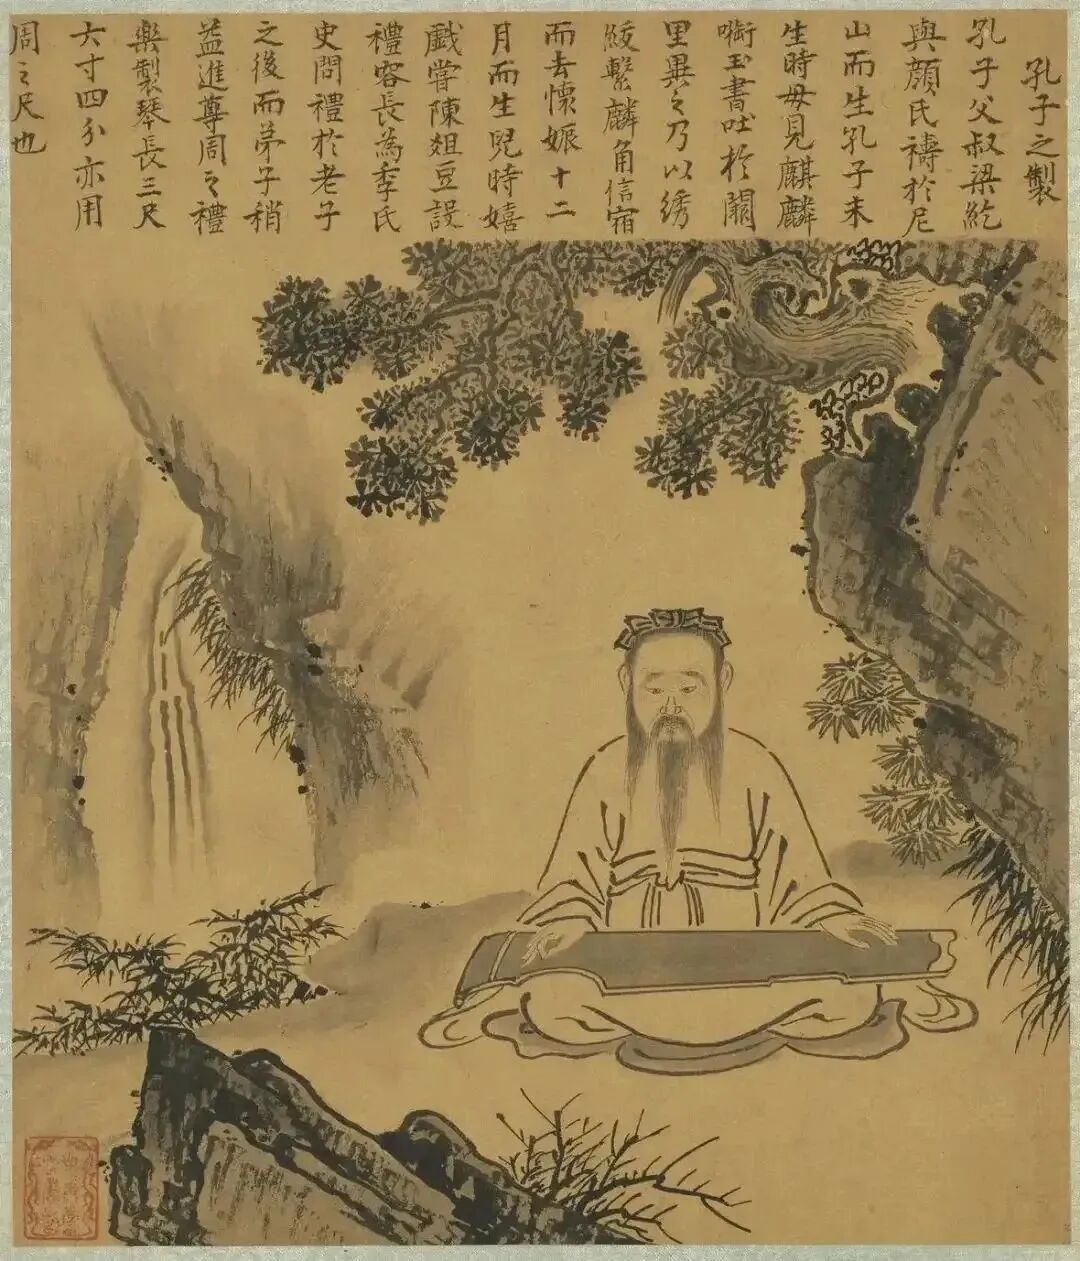 孔子之製
孔子父叔梁紇
與顏氏禱於尼
山而生孔子未
生時母見麒麟
啣玉書吐於闕
里異之乃以綉
紱繫麟角信宿
而去懷娠十二
月而生兒時嬉
戲嘗陳俎豆設
禮容長為季氏
史問禮於老子
之後而弟子稍
益進尊周之禮
樂製琴長三尺
六寸四分亦用
周之尺也